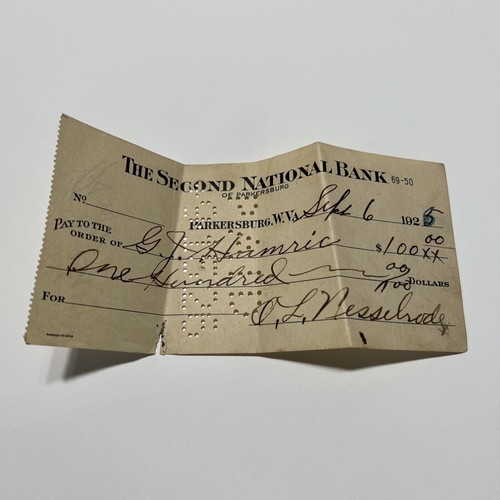 THE SECOND NATIONAL BANK 69-50
OF PARKERSBURG
No
PARKERSBURG, W. VA. Sept 6 1925
PAY TO THE
ORDER OF G. J. Hamric $100 00/XX
One Hundred 00/100 DOLLARS
FOR
O. L. Nesselrode